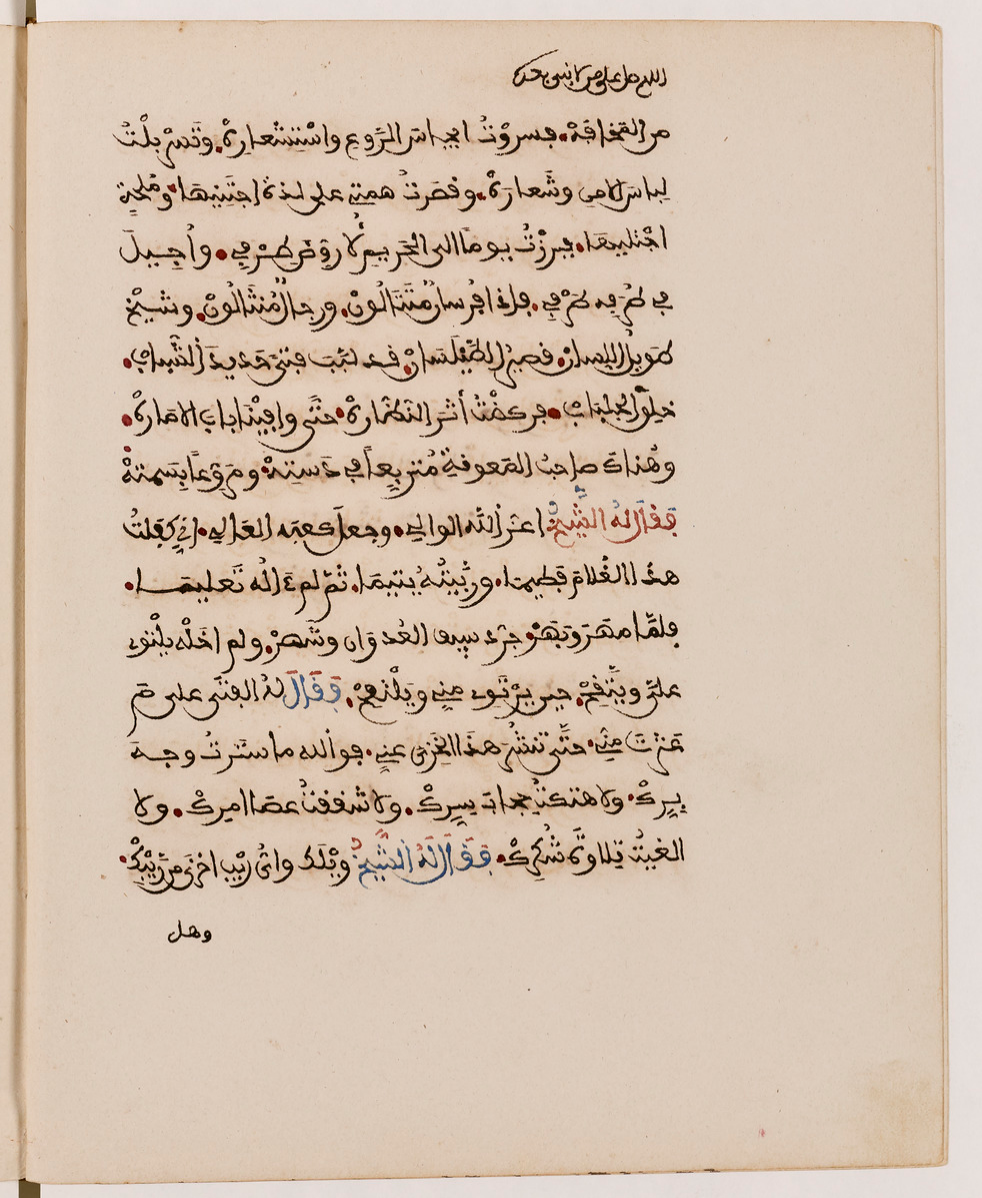 اللهم صل على من لا نبي بعده
من المخافة. فسروْتُ ايجاس الرَّوع واسْتِشْعارهْ. وتَسرْبلْتُ
لباس الامن وشَعارهْ. وقصَرتُ همتي على لذة اجتَنِيها. ومُلحةٍ
اجْتليها. فبرزْتُ يوماً الى الحَريم لأُروِّضَ طِرْفي. وأُجِيلَ
في طُرقِه طرْفي. فإذا فُرسانٌ مُتَتالُونْ. ورجالٌ مُنثالُونْ. وشيْخ
طويلُ اللسانْ. قصيرُ الطَّيْلَسانْ. قد لبَّبَ فتىً جَديدَ الشَّبابْ.
خلِقَ الجلبابْ. فركضْتُ أثرَ النَّظَّارهْ. حتَّى وافيْنا باب الامارهْ.
وهُناكَ صاحبُ المَعونةِ مُتربِّعاً في دَستِهْ. ومُروِّعاً بسَمتهْ
فقال له الشَّيخُ اعزَّ اللّه الوالي. وجعل كعبه العَالي. اني كفَلتُ
هذا الغُلامَ فطيما. وربَّيتُهُ يتيما. ثمَّ لم ءالُه تَعليمَا.
فلمَّا مهَر وبَهرْ. جرَّد سيف العُدوَان وشَهرْ. ولم اخَلْه يلْتوي
علَيَّ ويتَّقِحْ. حين يرْتَوي مني ويَلْتقِحْ. فقَال لهُ الفتَى على مَ
عَثرْتَ مِنِّي. حتَّى تنشُرَ هذا الخِزيَ عَنِّي. فوالله ما ستَرتُ وجهَ
بِرِّكْ. ولا هتكتُ حِجابَ سِترِكْ. ولا شققتُ عصَا امرِكْ. ولا
الغيتُ تِلاوةَ شُكرِكْ. فقَال لهُ الشَّيخُ ويْلك وايُّ ريْبٍ اخزَى من رَيْبِكْ.
وهل